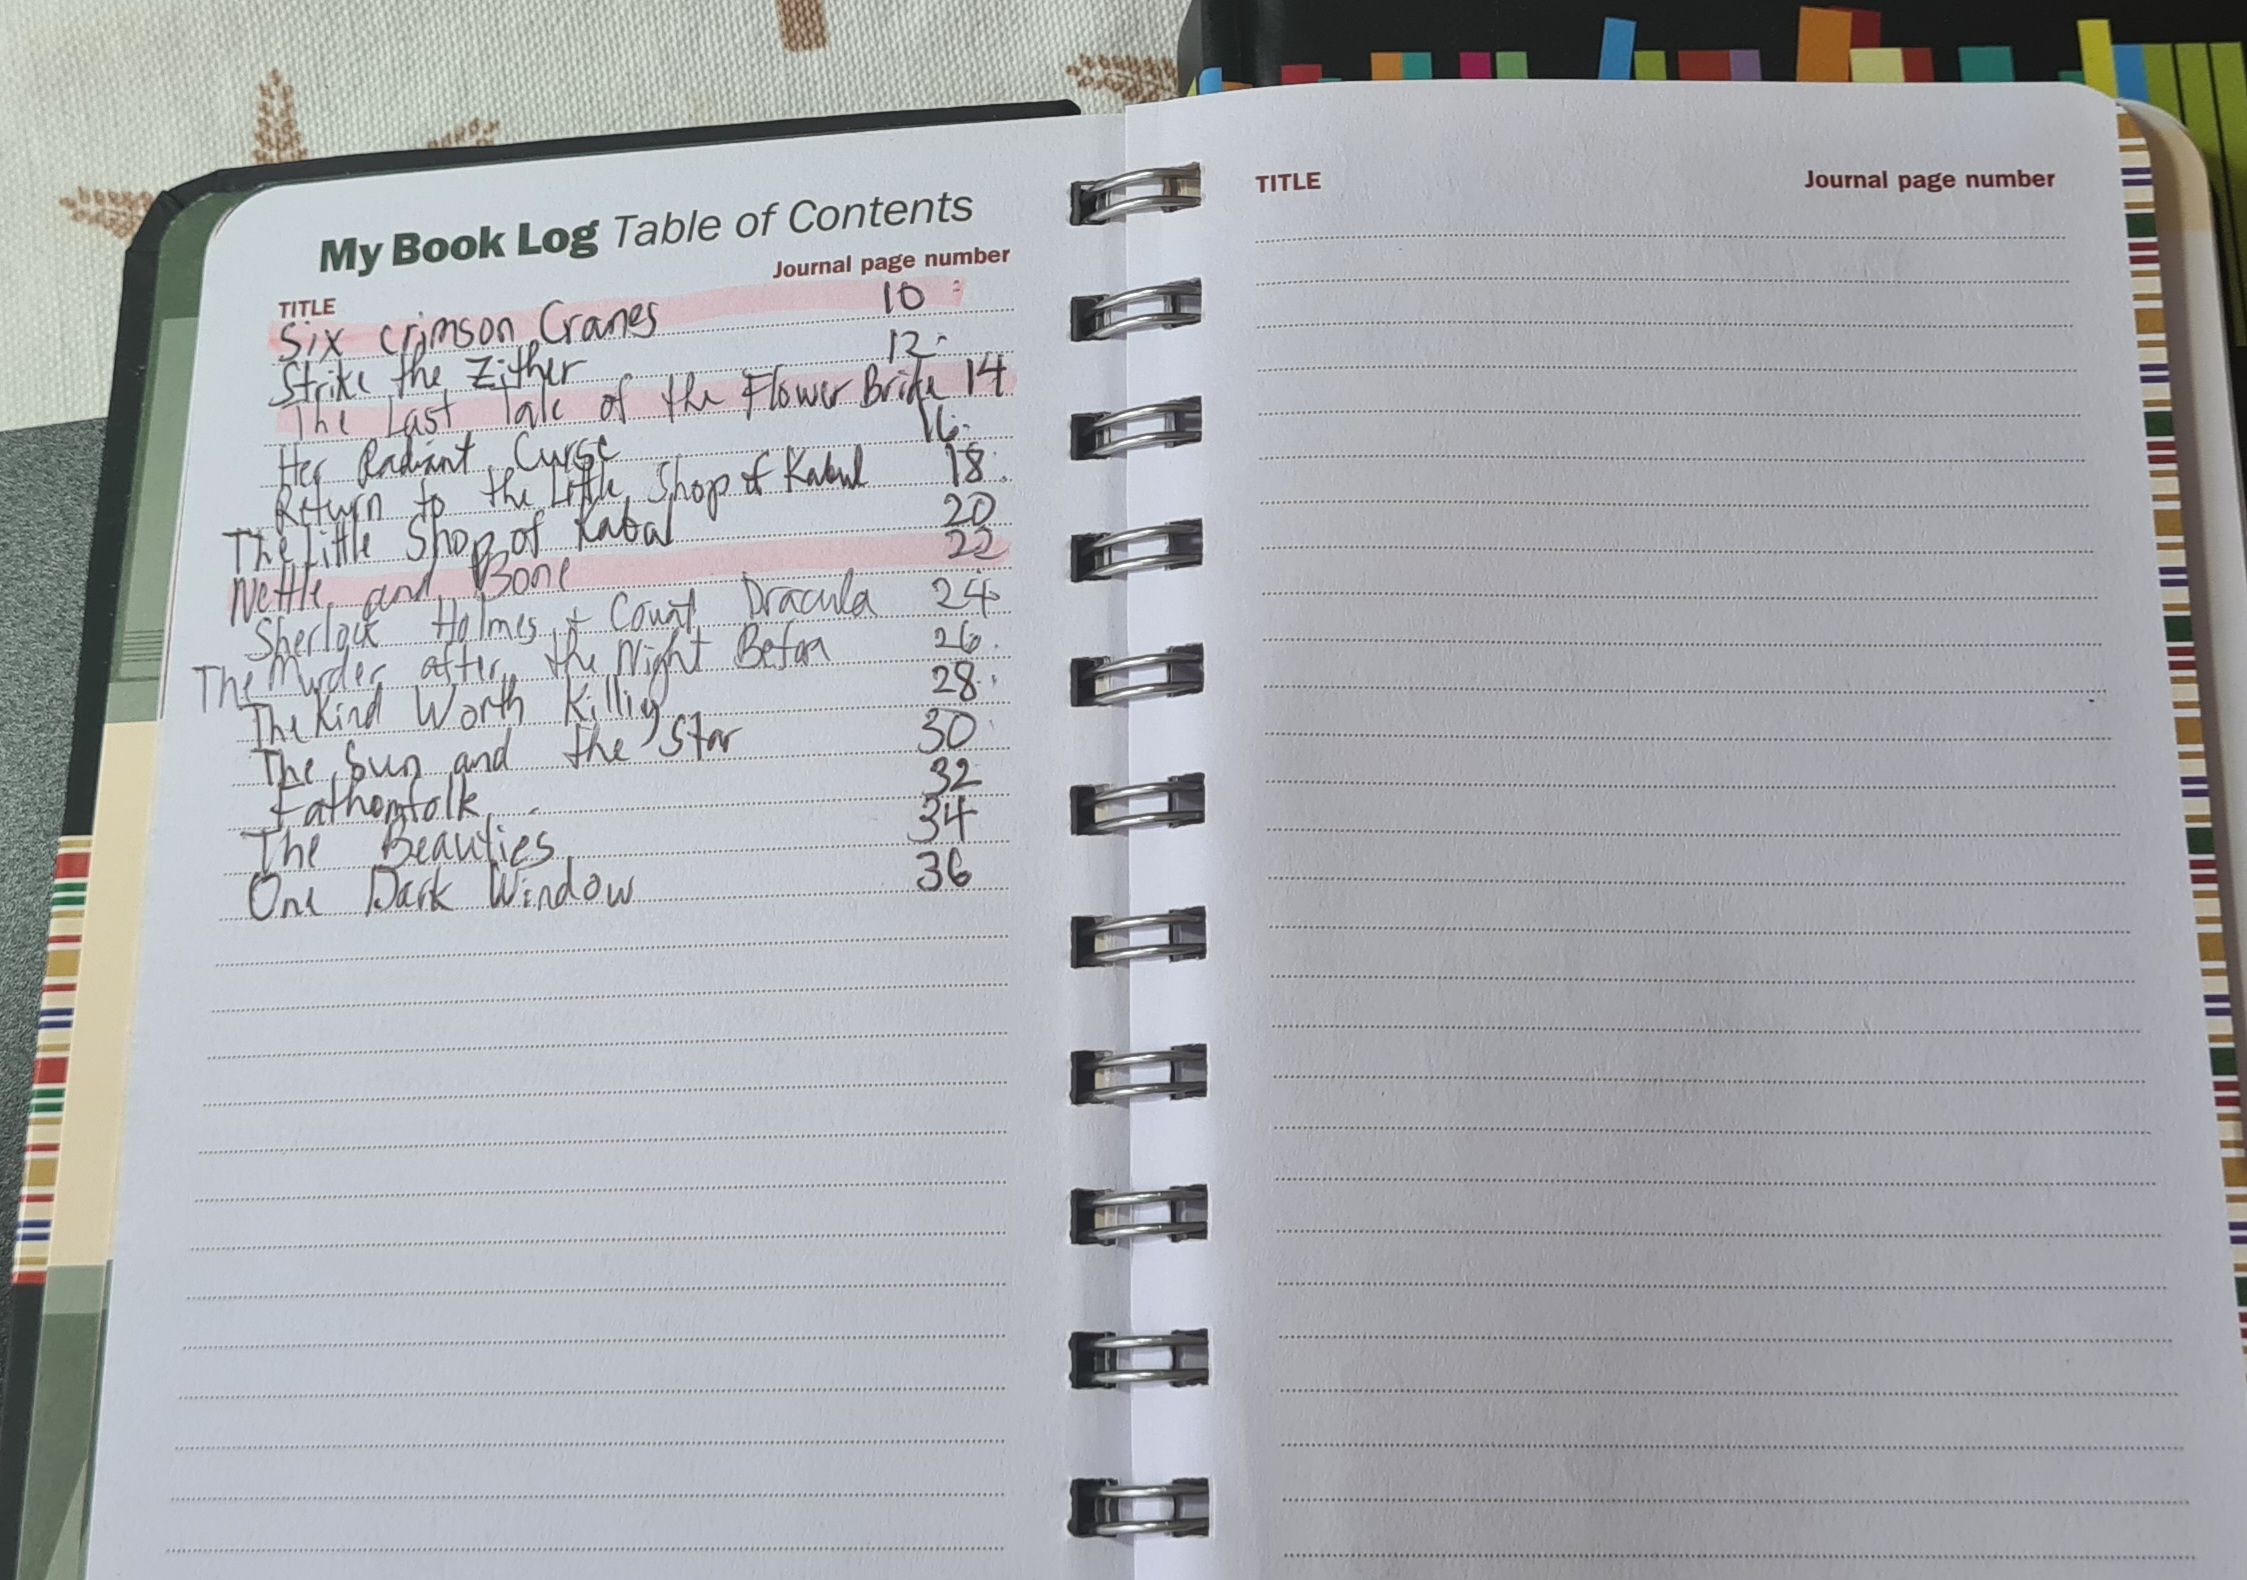 My Book Log Table of Contents
TITLE Journal page number
Six Crimson Cranes 10
Strike the Zither 12
The Last Tale of the Flower Bride 14
Her Radiant Curse 16
Return to the Little Shop of Kabul 18
The Little Shop of Kabul 20
Nettle and Bone 22
Sherlock Holmes + Count Dracula 24
The Murder after the Night Before 26
The Kind Worth Killig 28
The Sun and the Star 30
Fathomfolk 32
The Beauties 34
One Dark Window 36
TITLE Journal page number